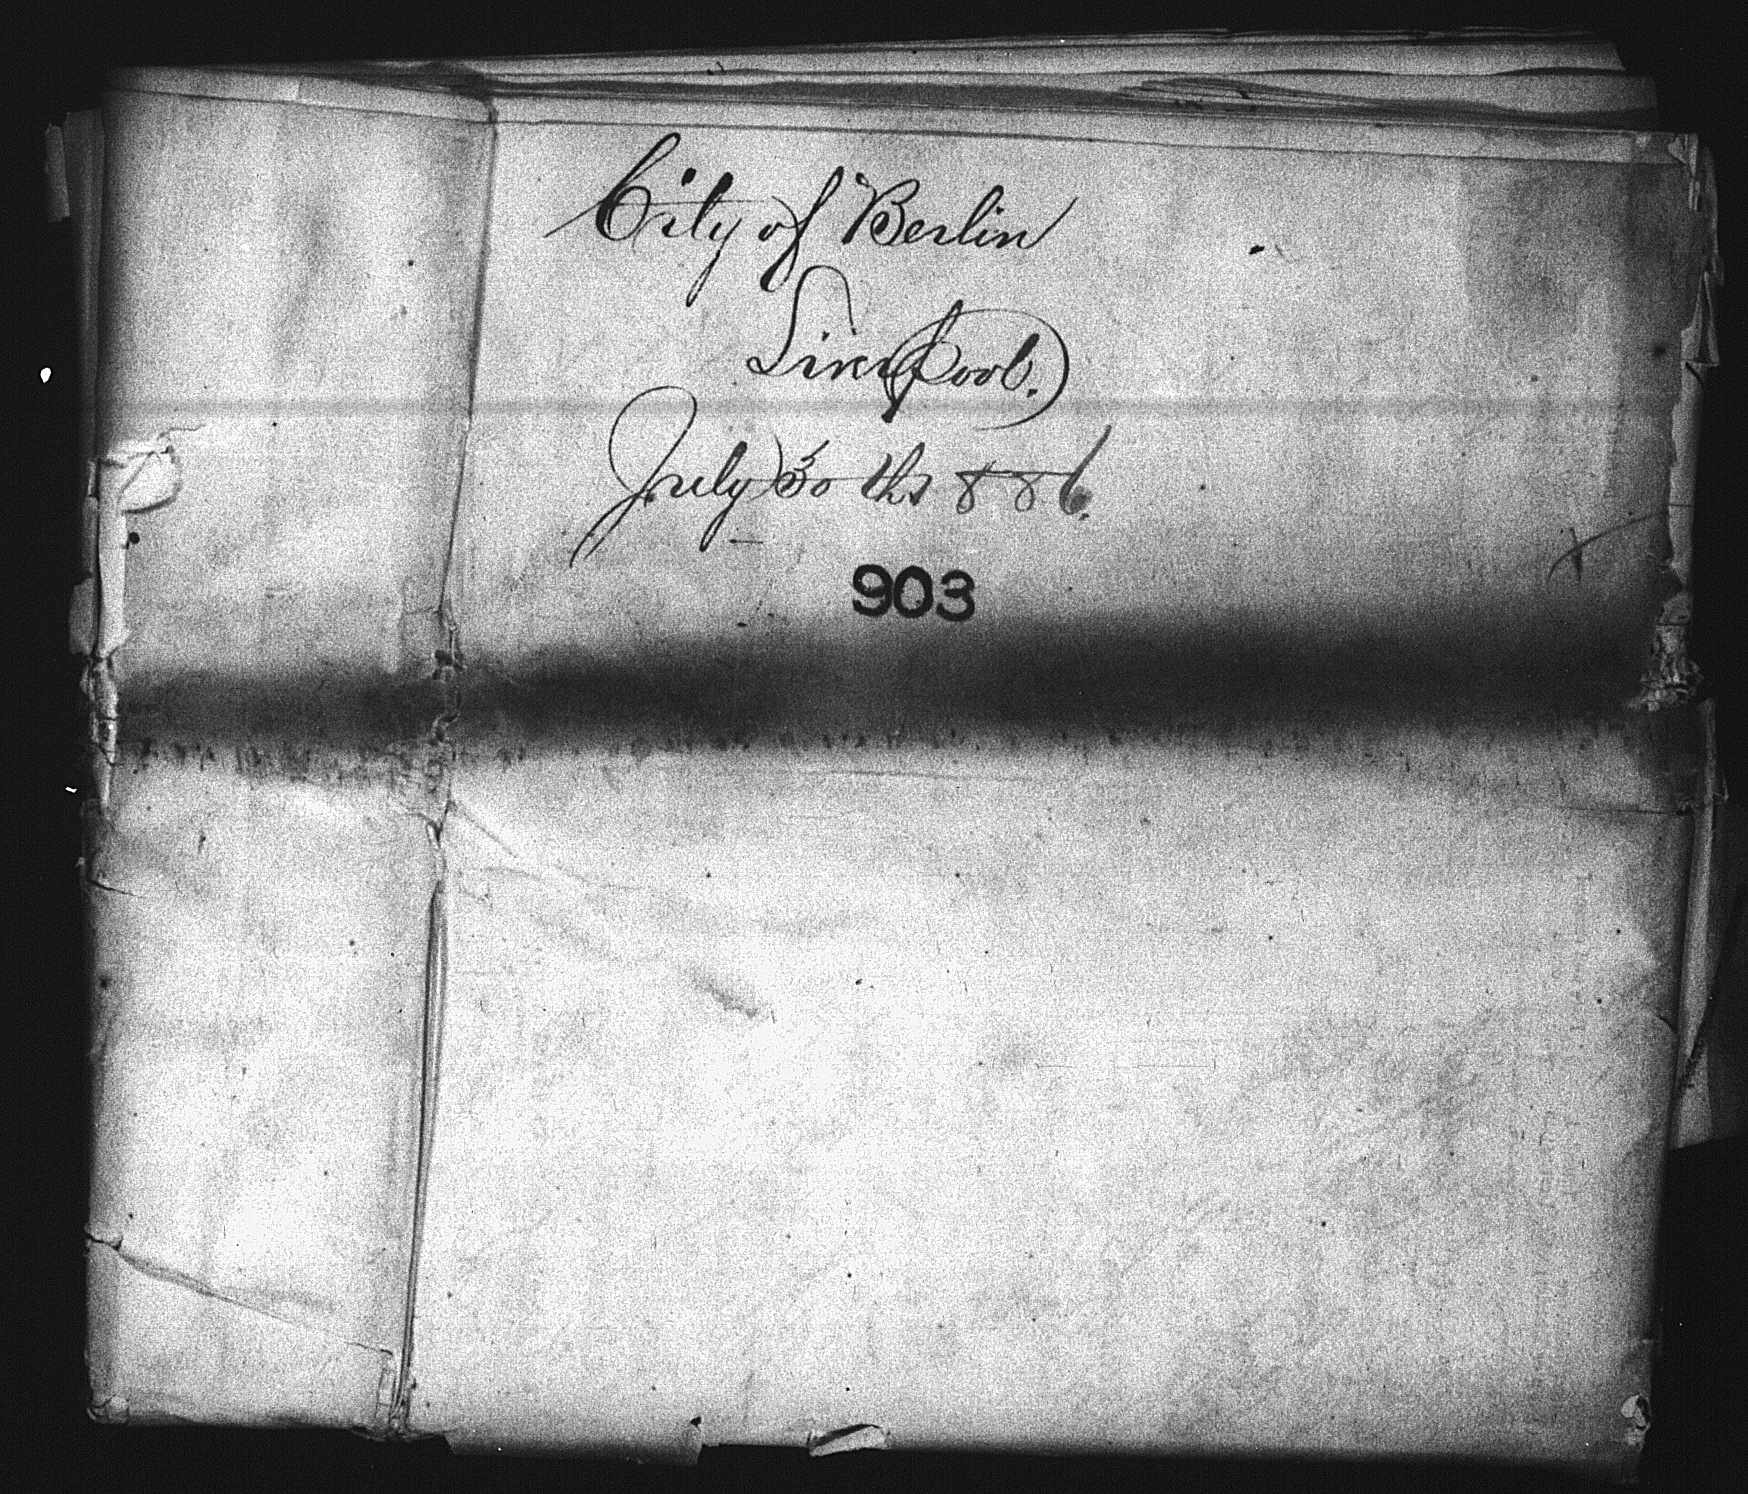 City of Berlin
Liverpool.
July 30th 1886.
903